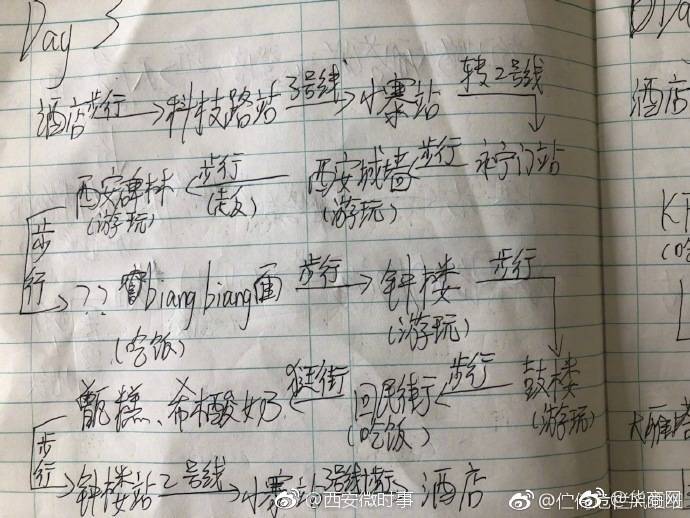 Day 3
酒店 步行 → 科技路站 3号线 → 小寨站 转2号线
西安碑林 (游玩) ← 步行 西安城墙 (游玩) ← 步行 永宁门站
步行 → ?? biangbiang面 (吃饭) 步行 → 钟楼 (游玩) 步行
甑糕、希木酸奶 ← 逛街 回民街 (吃饭) ← 步行 鼓楼 (游玩)
步行 → 钟楼站 2号线 → 小寨站 3号线 步行 → 酒店
酒店
大雁塔
@西安微时事
@华商网